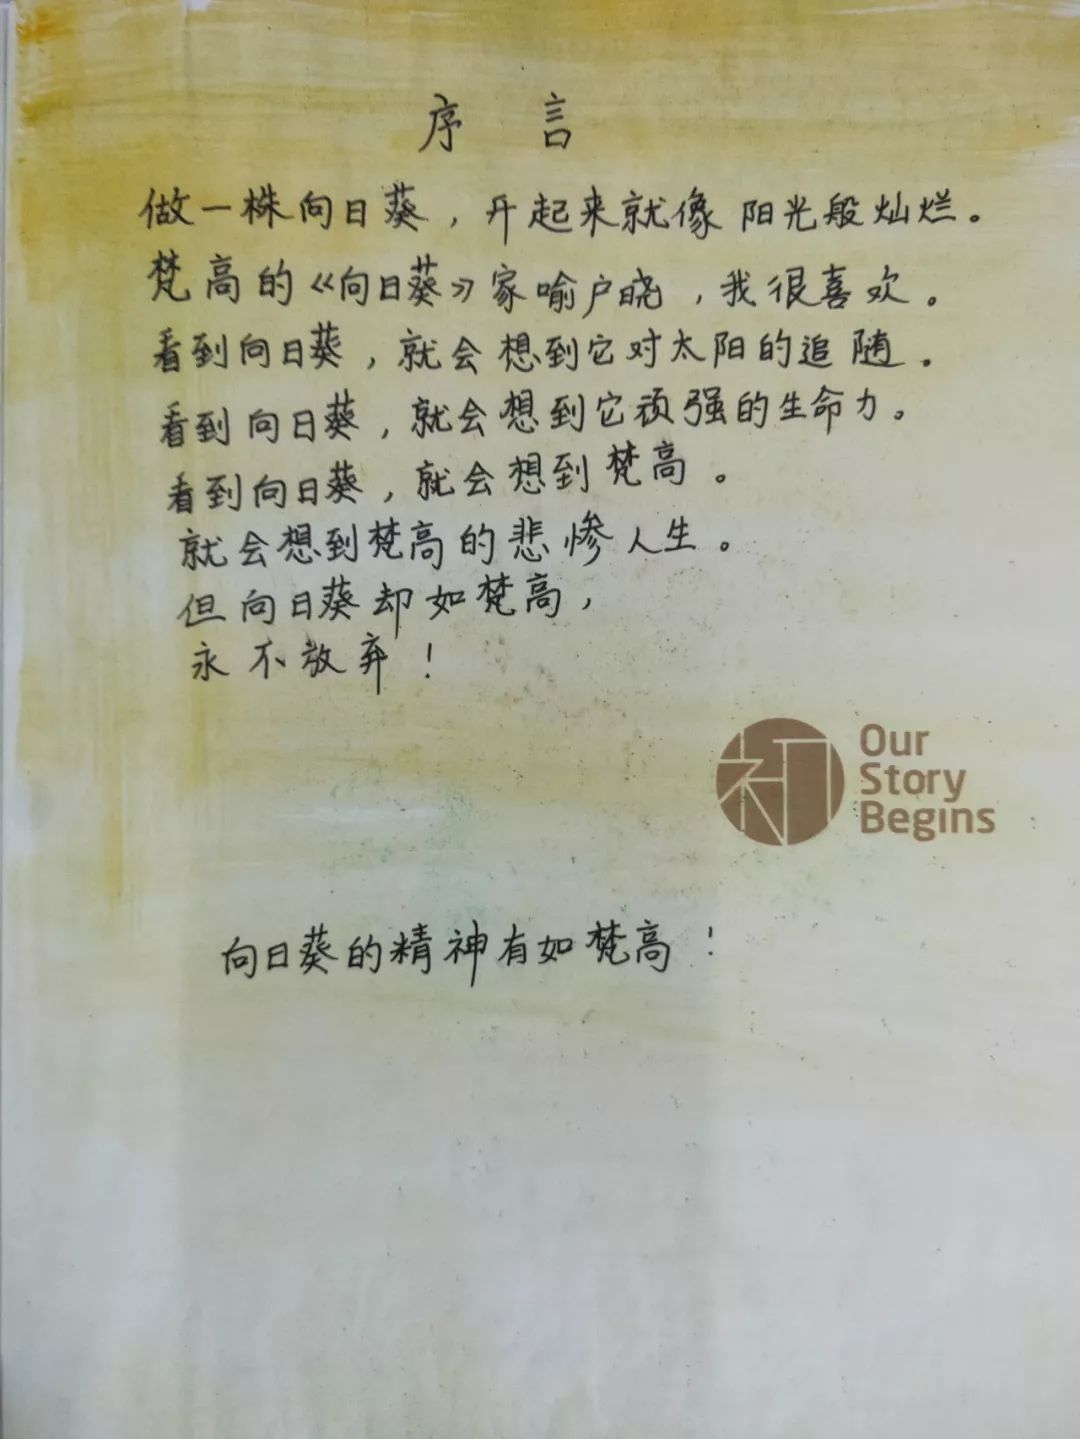 序言
做一株向日葵，开起来就像阳光般灿烂。
梵高的《向日葵》家喻户晓，我很喜欢。
看到向日葵，就会想到它对太阳的追随。
看到向日葵，就会想到它顽强的生命力。
看到向日葵，就会想到梵高。
就会想到梵高的悲惨人生。
但向日葵却如梵高，
永不放弃！
初
Our
Story
Begins
向日葵的精神有如梵高！